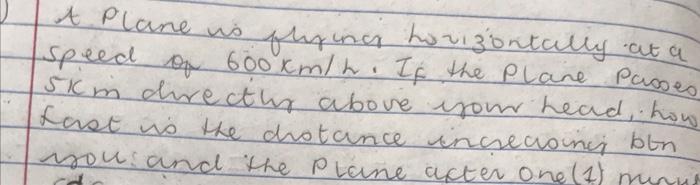 A Plane is flying horizontally at a
speed of 600 km/h. If the Plane Passes
5km directly above your head, how
fast is the distance increasing btn
you and the Plane after one (1) minut